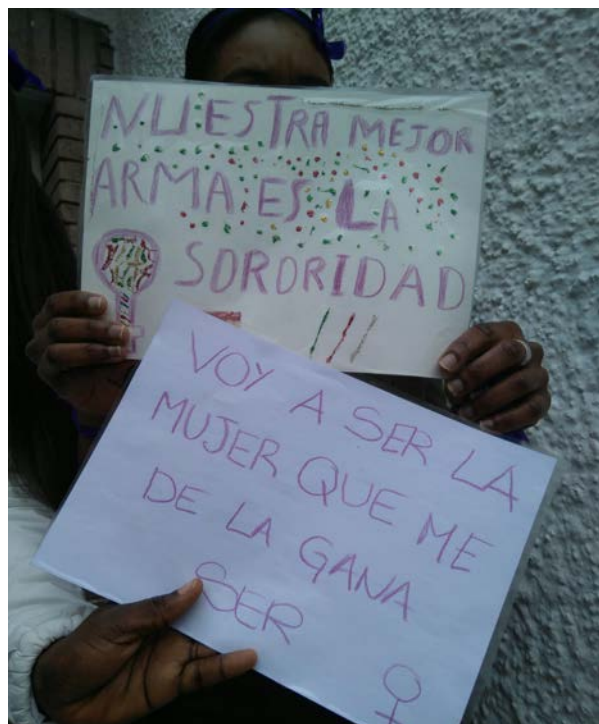 NUESTRA MEJOR
ARMA ES LA
SORORIDAD
VOY A SER LA
MUJER QUE ME
DE LA GANA
SER